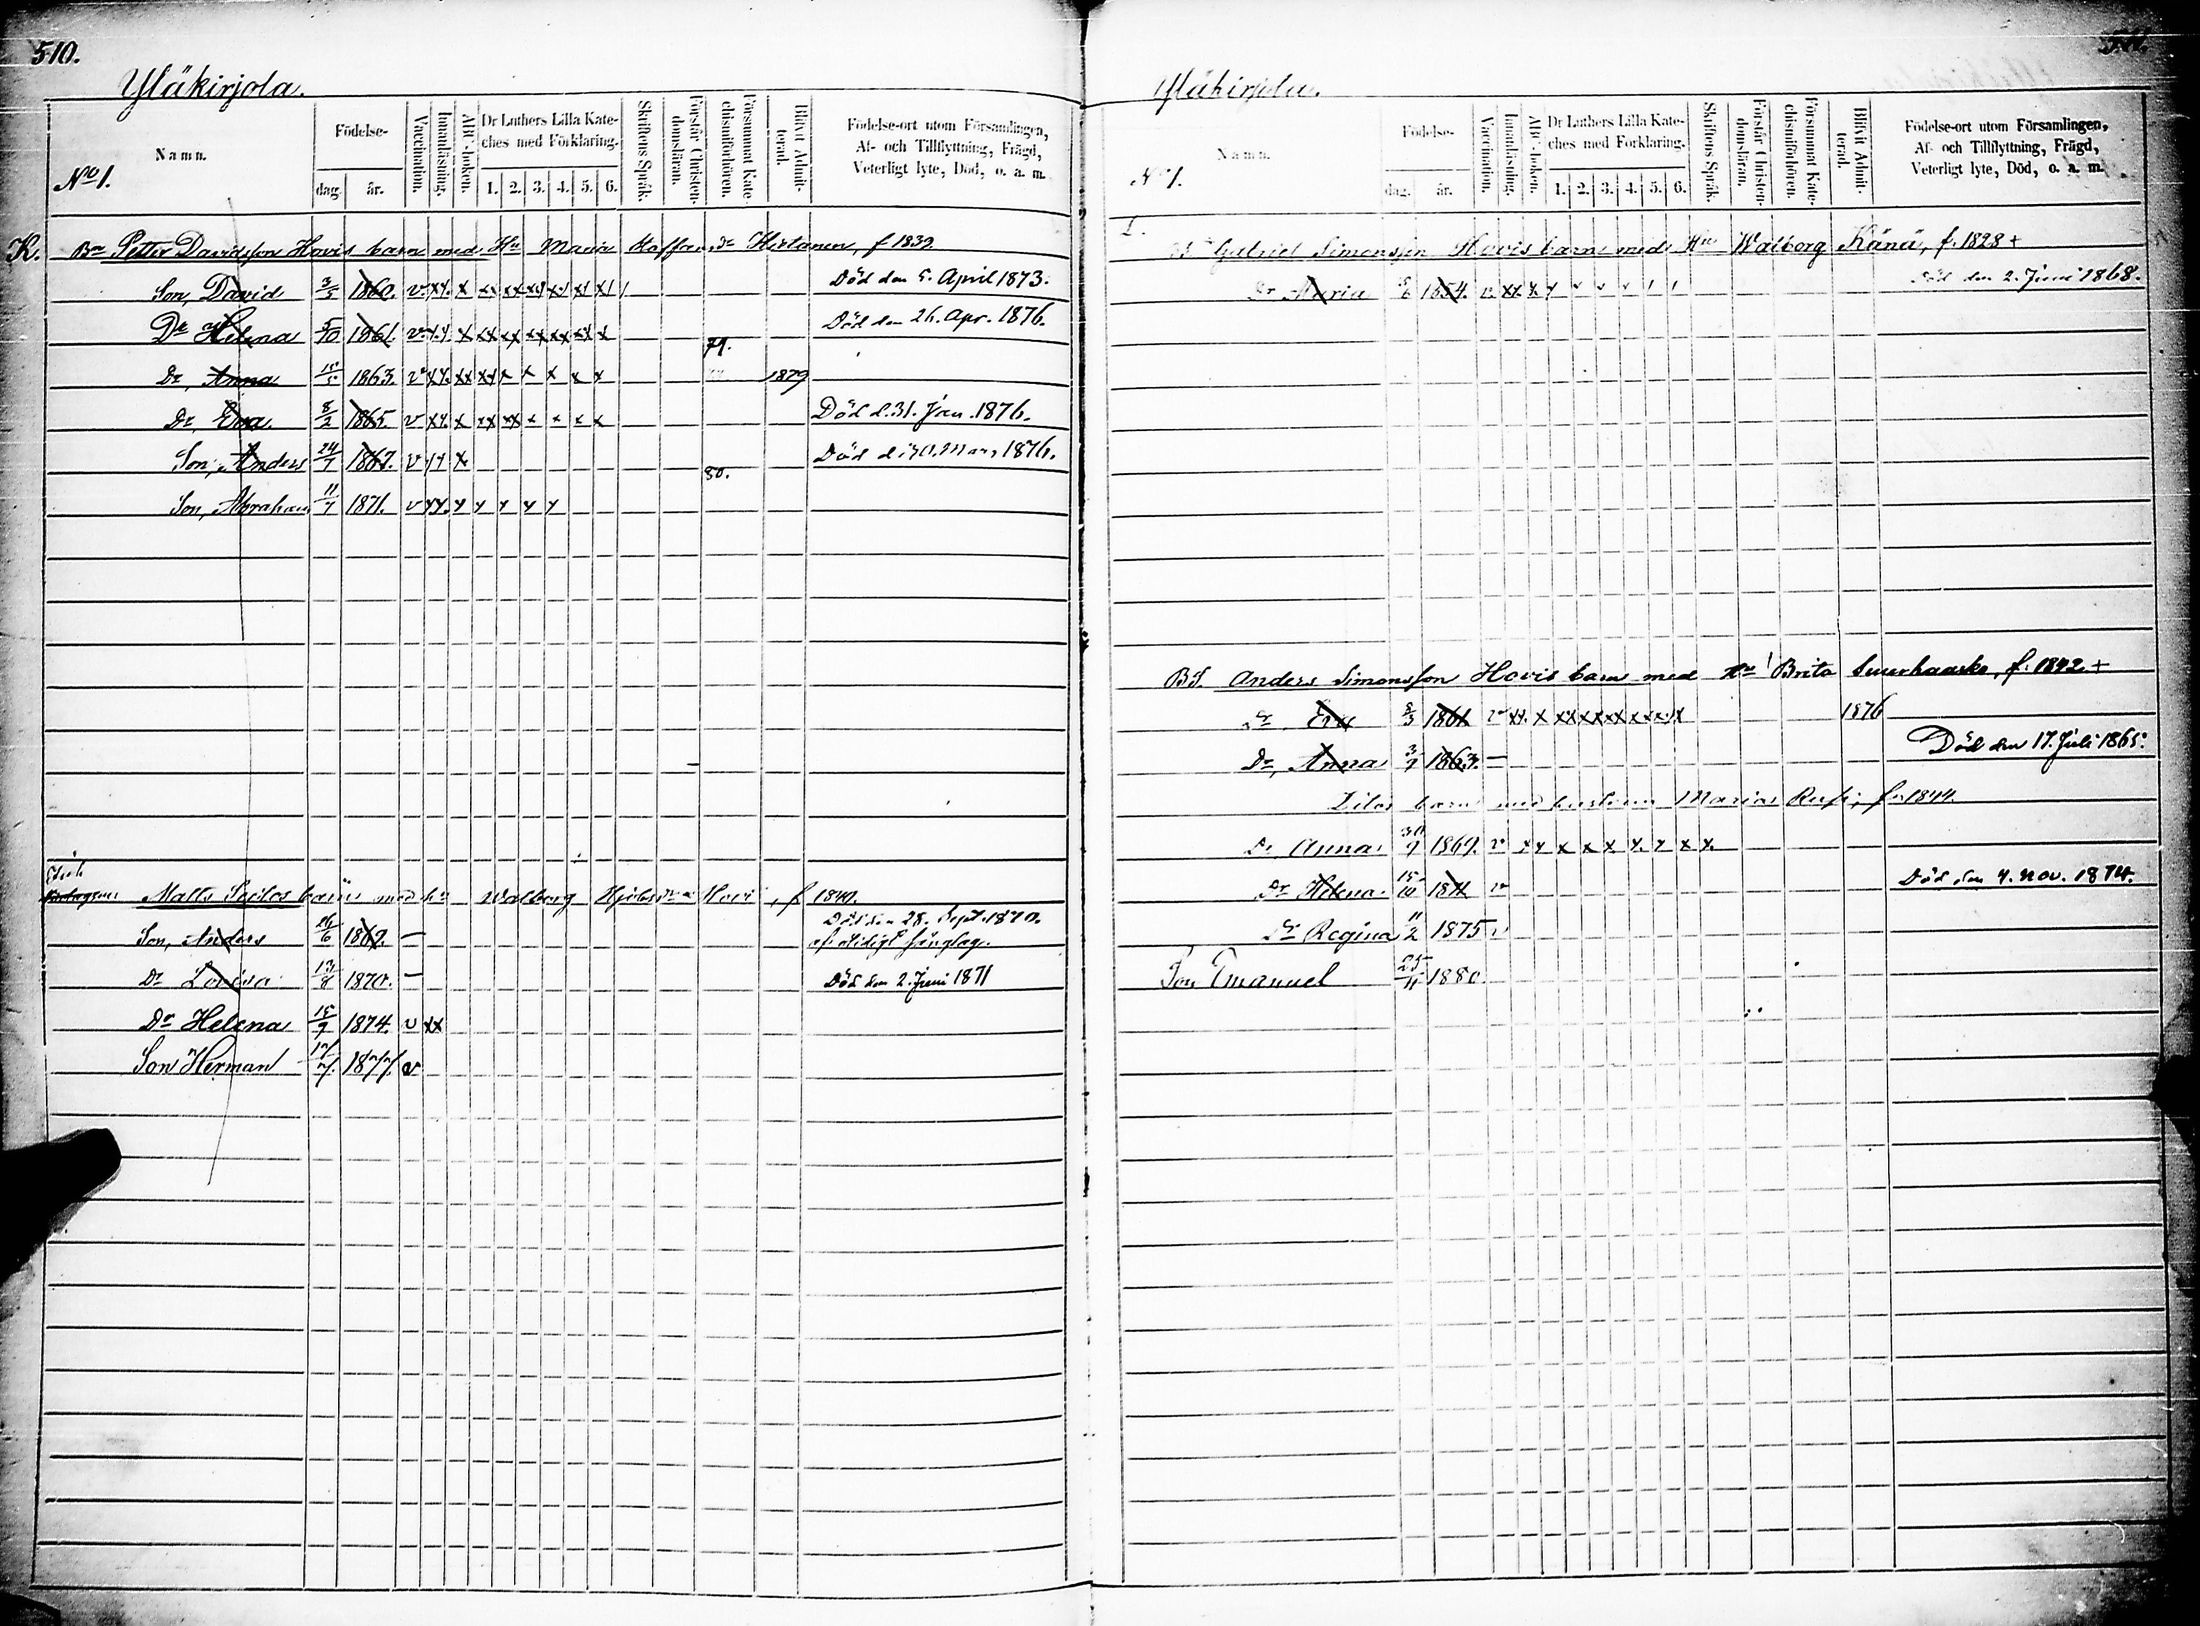 510.
Yläkirjola.
No 1.
Namn.
Födelse-
dag. år.
Vaccination.
Innanläsning.
ABC-boken.
Dr Luthers Lilla Kate-
ches med Förklaring.
1. 2. 3. 4. 5. 6.
Skriftens Språk.
Förstår Christen-
domsläran.
Försummat Kate-
chismiförhören.
Blifvit Admit-
terad.
Födelse-ort utom Församlingen,
Af- och Tillflyttning, Frägd,
Veterligt lyte, Död, o. a. m.
K. Bn Petter Davidsson Hovis barn med Hu Maria Hirtanen, f 1839
Son, David 3/5 1860. v. xx. x xx xx xx xx xx x Död den 5. April 1873.
Dr Helena 5/10 1861. v. x.x. x xx xx xx xx xx x Död den 26. Apr. 1876.
79.
Dr, Anna 15/5 1863. v xx. xx xx x x x x x 1879
Dr, Eva 8/2 1865. v xx. x xx xx x x x x Död d. 31. Jan. 1876.
Son, Anders 24/7 1867. v x Död d. 30. Mars 1876.
80.
Son, Abraham 11/7 1871. v
Matts barn med hu Walborg Hovi, f 1840.
Son, Anders 26/6 1869. — Död den 28. Sept. 1870.
Dr Lovisa 13/8 1870. — Död den 2. Juni 1871
Dr Helena 15/9 1874. v xx
Son Herman 17/7. 1877. v
Yläkirjola.
No 1.
Namn.
Födelse-
dag. år.
Vaccination.
Innanläsning.
ABC-boken.
Dr Luthers Lilla Kate-
ches med Förklaring.
1. 2. 3. 4. 5. 6.
Skriftens Språk.
Förstår Christen-
domsläran.
Försummat Kate-
chismiförhören.
Blifvit Admit-
terad.
Födelse-ort utom Församlingen,
Af- och Tillflyttning, Frägd,
Veterligt lyte, Död, o. a. m.
I.
Gabriel Simonsson Hovis barn med Hu Walborg Känä, f. 1828 +
Dr Maria 1854. v. xx. x Död den 2. Juni 1868.
Anders Simonsson Hovis barn med Hu Brita Suurhaasko, f. 1842. +
Dr Eva 8/3 1861 v xx. x xx xx xx x xx x 1876
Dr, Anna 3/9 1863. — Död den 17. Juli 1865.
Ditos barn med hustrun Maria Rusi, f. 1844.
Dr, Anna 30/9 1869. v x x x x x x x x x.
Dr Helena 15/10 1871 v Död den 4. Nov. 1874.
Dr Regina 11/2 1875 v
Son Emanuel 25/11 1880.